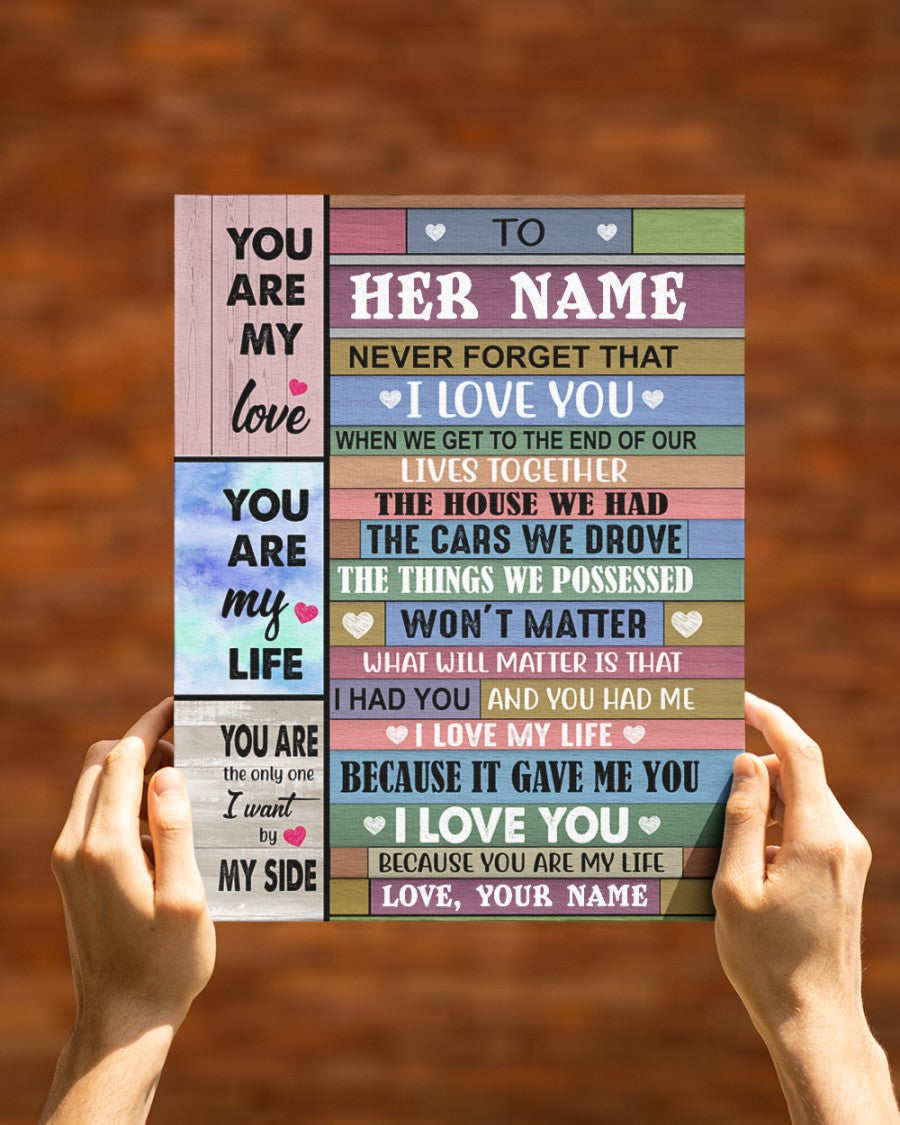 YOU
ARE
MY
love
YOU
ARE
my
LIFE
YOU ARE
the only one
I want
by
MY SIDE
TO
HER NAME
NEVER FORGET THAT
I LOVE YOU
WHEN WE GET TO THE END OF OUR
LIVES TOGETHER
THE HOUSE WE HAD
THE CARS WE DROVE
THE THINGS WE POSSESSED
WON'T MATTER
WHAT WILL MATTER IS THAT
I HAD YOU AND YOU HAD ME
I LOVE MY LIFE
BECAUSE IT GAVE ME YOU
I LOVE YOU
BECAUSE YOU ARE MY LIFE
LOVE, YOUR NAME